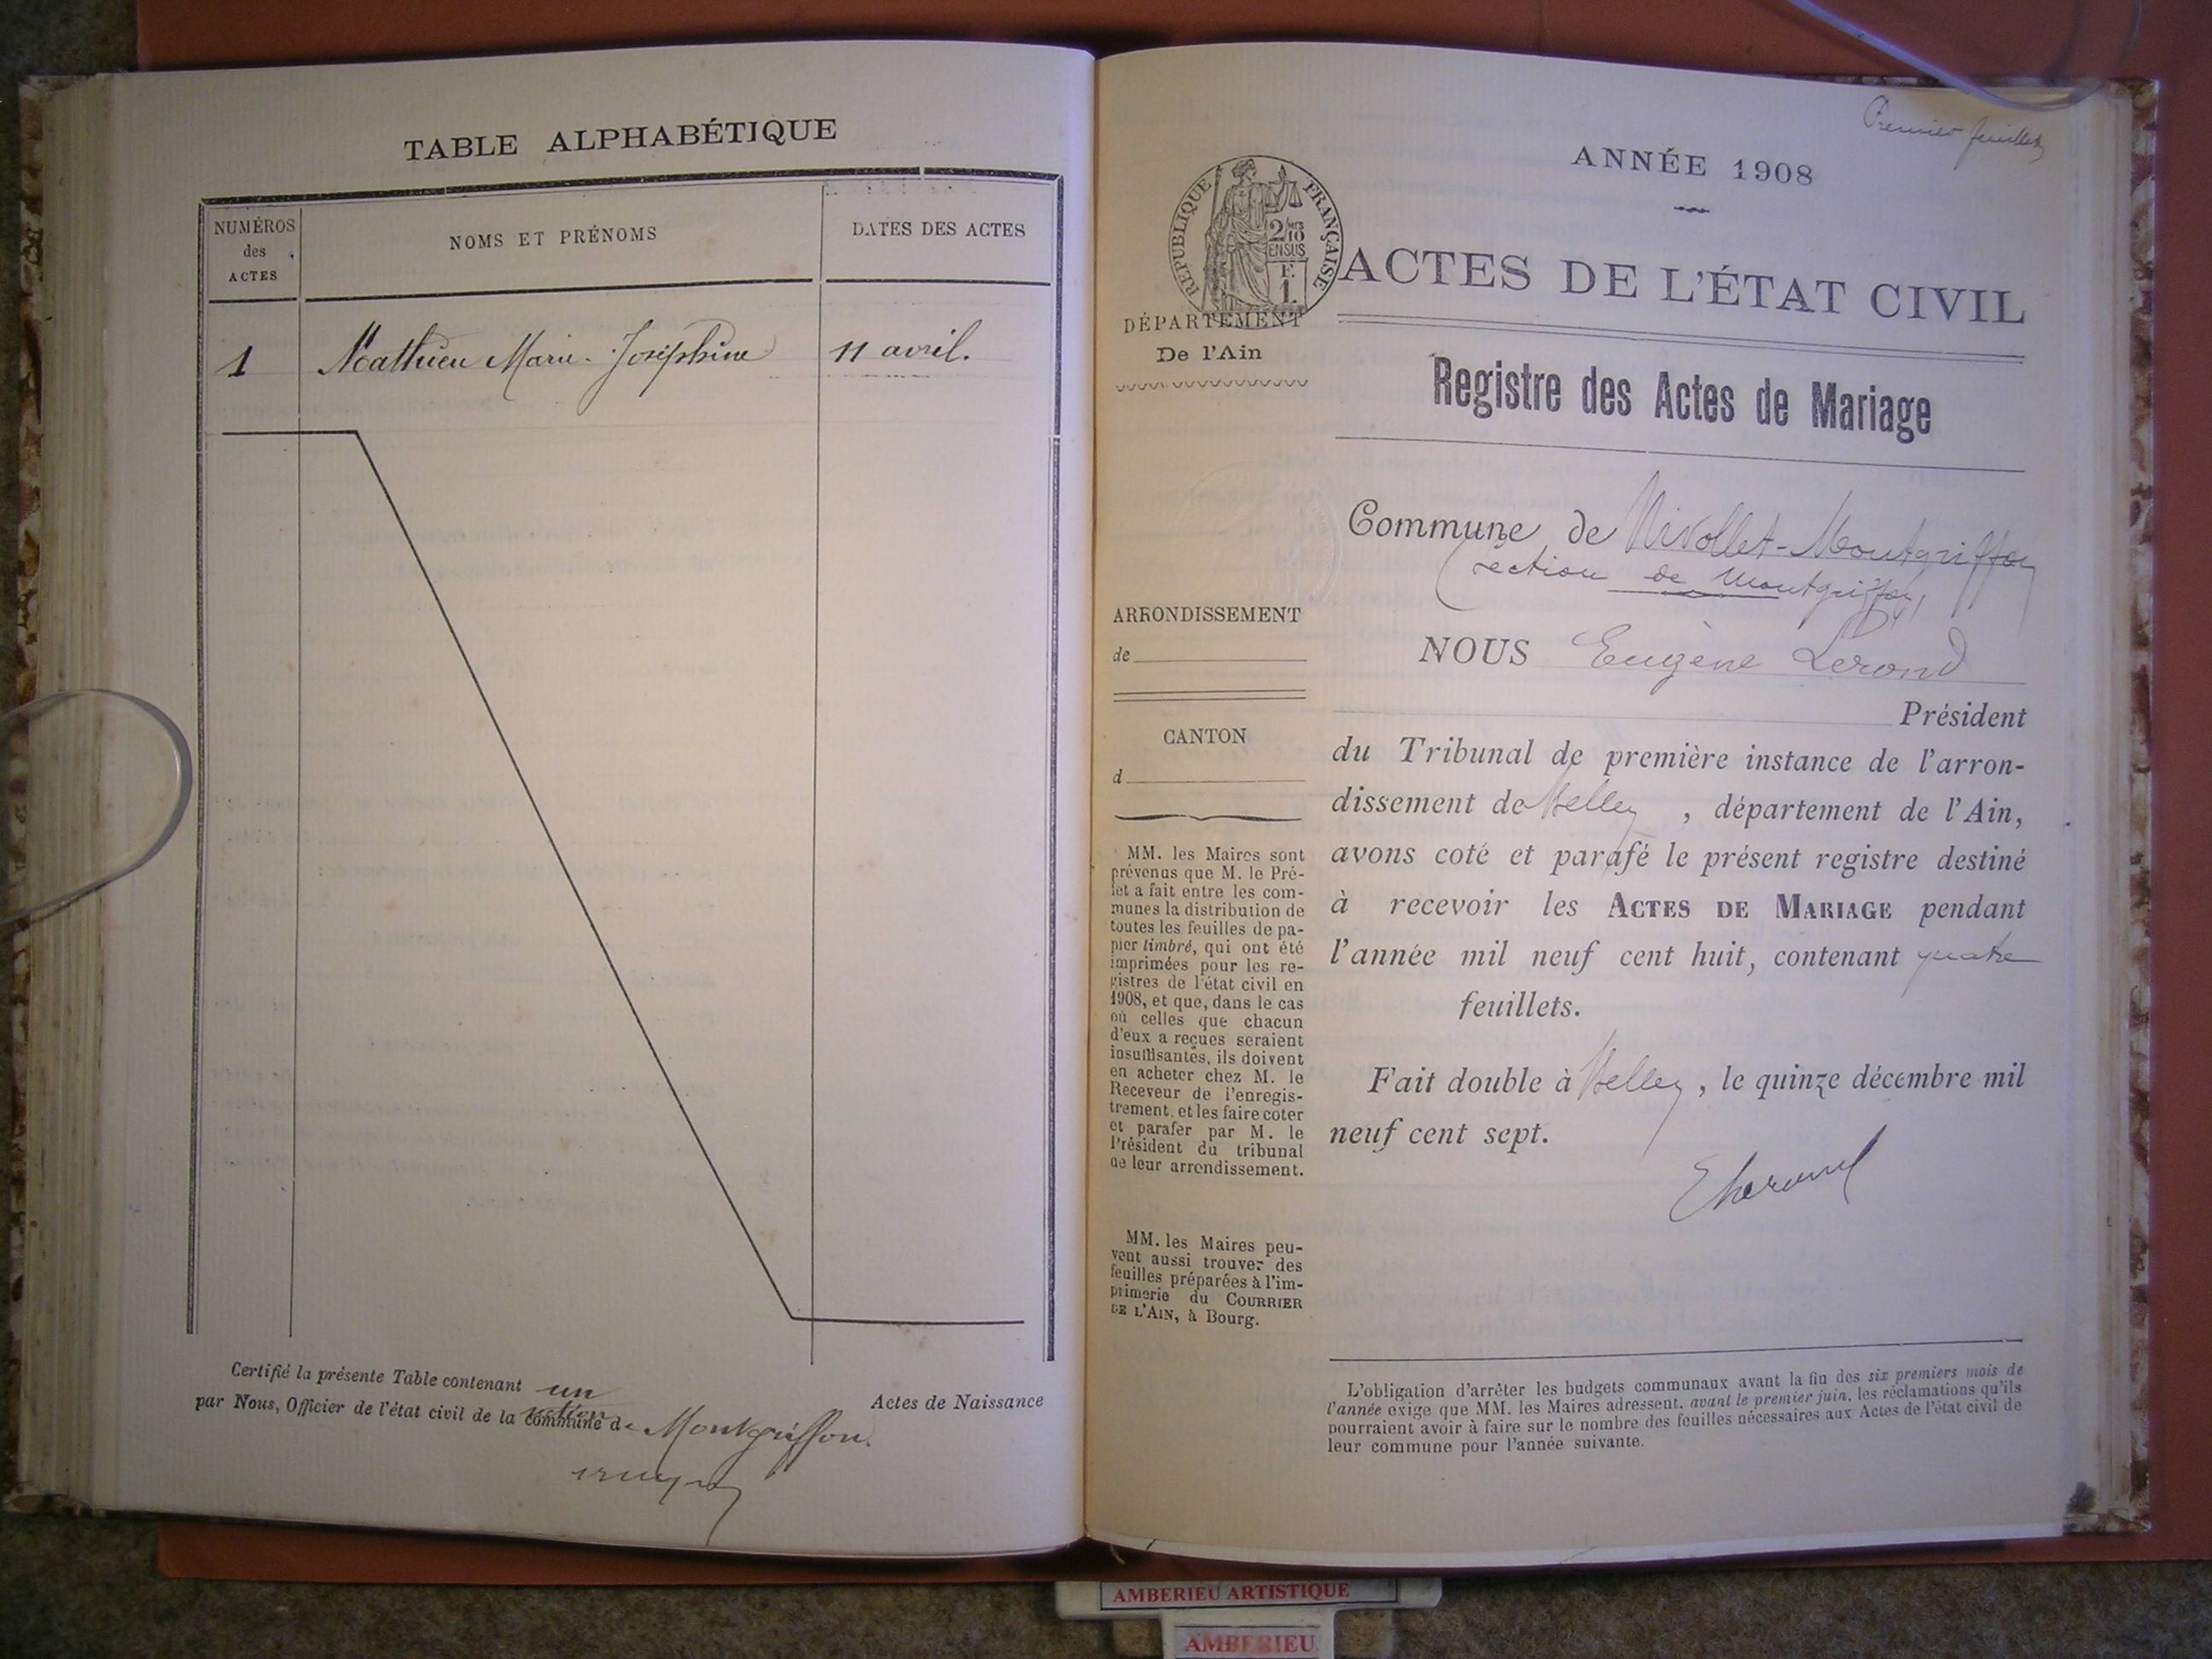 TABLE ALPHABÉTIQUE
NUMÉROS
des
ACTES
NOMS ET PRÉNOMS
DATES DES ACTES
1
Mathieu Marie-Joséphine
11 avril.
Certifié la présente Table contenant un
Actes de Naissance
par Nous, Officier de l'état civil de la commune de Montgriffon.
section
Premier feuillet
ANNÉE 1908
RÉPUBLIQUE FRANÇAISE
2/10
EN SUS
F.
1
ACTES DE L'ÉTAT CIVIL
DÉPARTEMENT
De l'Ain
Registre des Actes de Mariage
Commune de Nivollet-Montgriffon
(section de Montgriffon)
ARRONDISSEMENT
de
CANTON
d
NOUS Eugène Lerond
Président
du Tribunal de première instance de l'arron-
dissement de Belley, département de l'Ain,
avons coté et parafé le présent registre destiné
à recevoir les ACTES DE MARIAGE pendant
l'année mil neuf cent huit, contenant quatre
feuillets.
Fait double à Belley, le quinze décembre mil
neuf cent sept.
MM. les Maires sont
prévenus que M. le Pré-
fet a fait entre les com-
munes la distribution de
toutes les feuilles de pa-
pier timbré, qui ont été
imprimées pour les re-
gistres de l'état civil en
1908, et que, dans le cas
où celles que chacun
d'eux a reçues seraient
insuffisantes, ils doivent
en acheter chez M. le
Receveur de l'enregis-
trement, et les faire coter
et parafer par M. le
Président du tribunal
de leur arrondissement.
MM. les Maires peu-
vent aussi trouver des
feuilles préparées à l'im-
primerie du COURRIER
DE L'AIN, à Bourg.
L'obligation d'arrêter les budgets communaux avant la fin des six premiers mois de
l'année exige que MM. les Maires adressent, avant le premier juin, les réclamations qu'ils
pourraient avoir à faire sur le nombre des feuilles nécessaires aux Actes de l'état civil de
leur commune pour l'année suivante.
AMBERIEU ARTISTIQUE
AMBERIEU